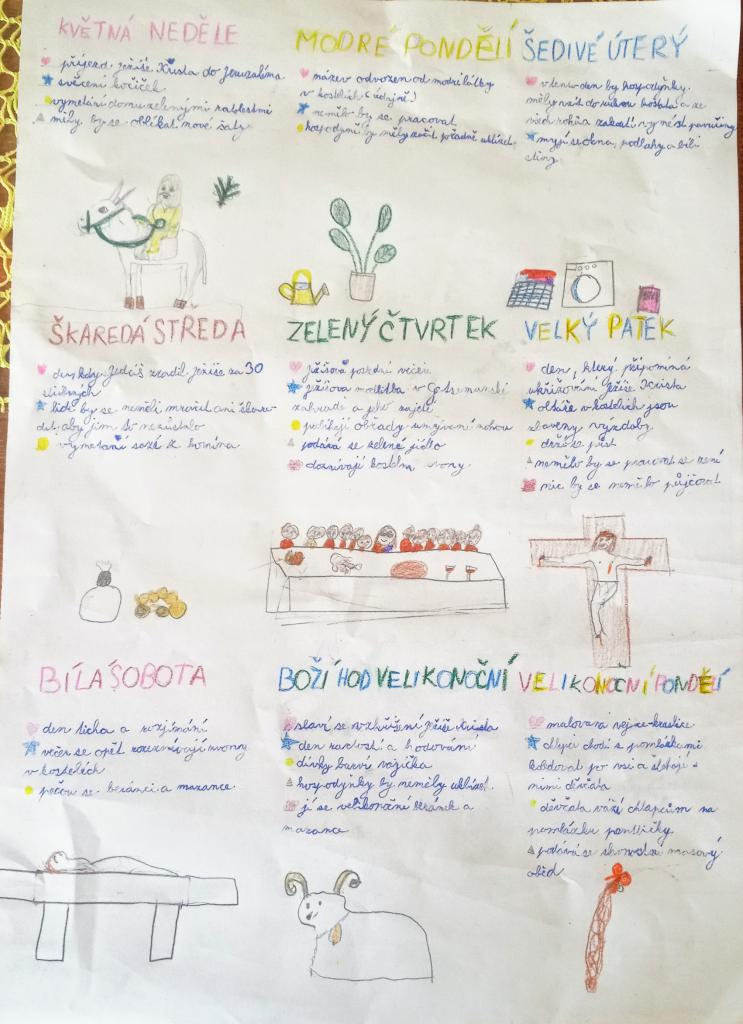 KVĚTNÁ NEDĚLE
příjezd Ježíše Krista do Jeruzaléma
svěcení kočiček
vymetání domu zelenými ratolestmi
měly by se oblékat nové šaty
MODRÉ PONDĚLÍ
název odvozen od modré látky
v kostelích (údajně)
nemělo by se pracovat
hospodyně by měly začít pořádně uklízet
ŠEDIVÉ ÚTERÝ
v tento den by hospodyňky
měly vzít do rukou košťata a ze
všech rohů a zákoutí vymést pavučiny
myjí se okna, podlahy a bílí
stěny
ŠKAREDÁ STŘEDA
den, kdy Jidáš zradil Ježíše za 30
stříbrných
lidé by se neměli mračit ani škare-
dit, aby jim to nezůstalo
vymetání sazí z komína
ZELENÝ ČTVRTEK
Ježíšova poslední večeře
Ježíšova modlitba v Getsemanské
zahradě a jeho zajetí
probíhají obřady umývání nohou
podává se zelené jídlo
doznívají kostelní zvony
VELKÝ PÁTEK
den, který připomíná
ukřižování Ježíše Krista
oltáře v kostelích jsou
zbaveny výzdoby
držíte půst
nemělo by se pracovat se zemí
nic by se nemělo půjčovat
BÍLÁ SOBOTA
den ticha a rozjímání
večer se opět rozeznívají zvony
v kostelích
pečou se beránci a mazance
BOŽÍ HOD VELIKONOČNÍ
slaví se vzkříšení Ježíše Krista
den radosti a hodování
dívky barví vajíčka
hospodyňky by neměly uklízet
jí se velikonoční beránek a
mazance
VELIKONOČNÍ PONDĚLÍ
malovaná vejce-kraslice
chlapci chodí s pomlázkami
koledovat po vsi a šlehají s
nimi děvčata
děvčata váží chlapcům na
pomlázku pentličky
podává se skvostný masový
oběd